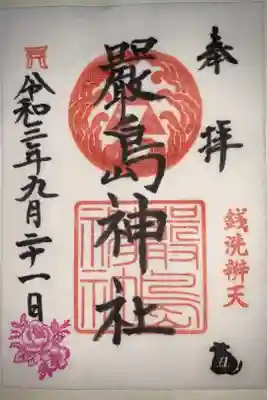 奉拝
嚴島神社
銭洗辨天
令和三年九月二十一日
嚴島
神社